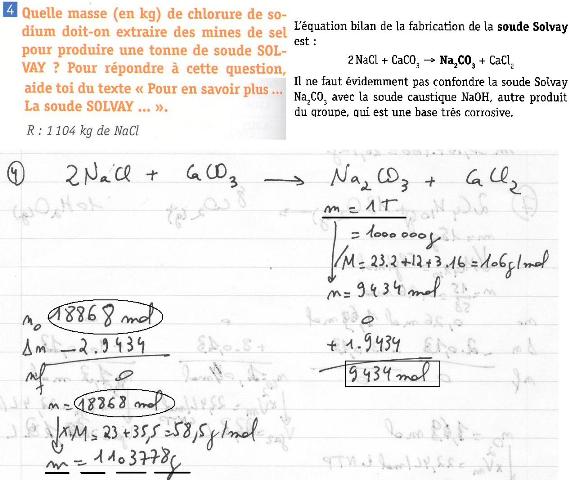 4 Quelle masse (en kg) de chlorure de so-
dium doit-on extraire des mines de sel
pour produire une tonne de soude SOL-
VAY ? Pour répondre à cette question,
aide toi du texte « Pour en savoir plus ...
La soude SOLVAY ... ».
R : 1 104 kg de NaCl
L'équation bilan de la fabrication de la soude Solvay
est :
2 NaCl + CaCO₃ → Na₂CO₃ + CaCl₂
Il ne faut évidemment pas confondre la soude Solvay
Na₂CO₃ avec la soude caustique NaOH, autre produit
du groupe, qui est une base très corrosive.
4) 2NaCl + CaCO₃ → Na₂CO₃ + CaCl₂
m = 1T
= 1000 000g
/M = 23.2+12+3.16 = 106g/mol
n = 9434 mol
n₀ 18868 mol 0
Δn - 2.9434 + 1.9434
nf 0 9434 mol
n = 18868 mol
x M = 23+35,5 = 58,5g/mol
m = 1103778g